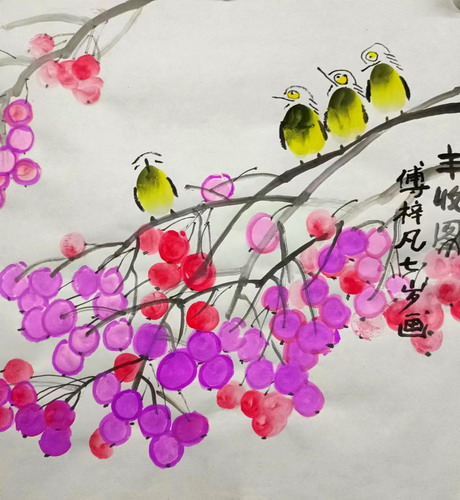 丰收图
傅梓凡七岁画